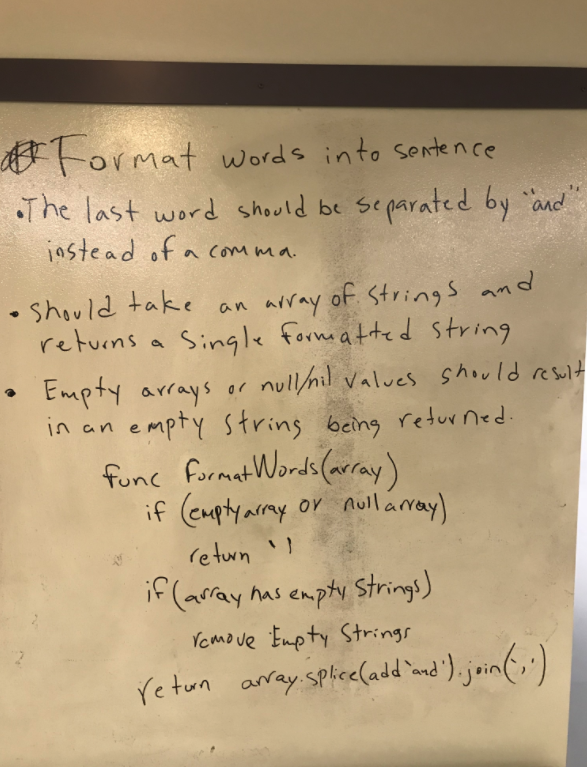 Format words into sentence
• The last word should be separated by "and"
instead of a comma.
• Should take an array of strings and
returns a single formatted string
• Empty arrays or null/nil values should result
in an empty string being returned.
func formatWords(array)
if (empty array or null array)
return ''
if (array has empty strings)
remove Empty Strings
return array.splice(add 'and').join(',')